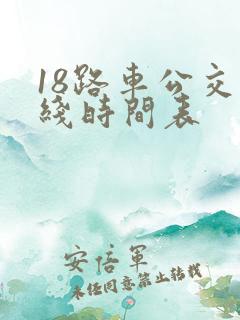 18路車公交
綫時間表
安倍軍
未经同意禁止转载